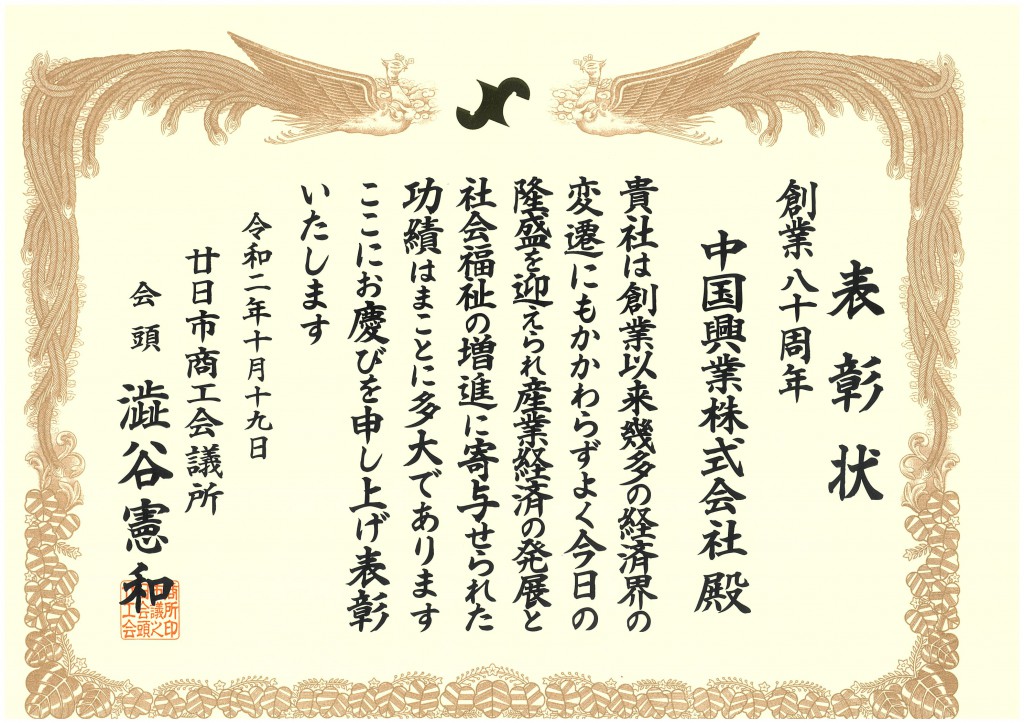 表彰状
創業八十周年
中国興業株式会社殿
貴社は創業以来幾多の経済界の
変遷にもかかわらずよく今日の
隆盛を迎えられ産業経済の発展と
社会福祉の増進に寄与せられた
功績はまことに多大であります
ここにお慶びを申し上げ表彰
いたします
令和二年十月十九日
廿日市商工会議所
会頭 澁谷憲和